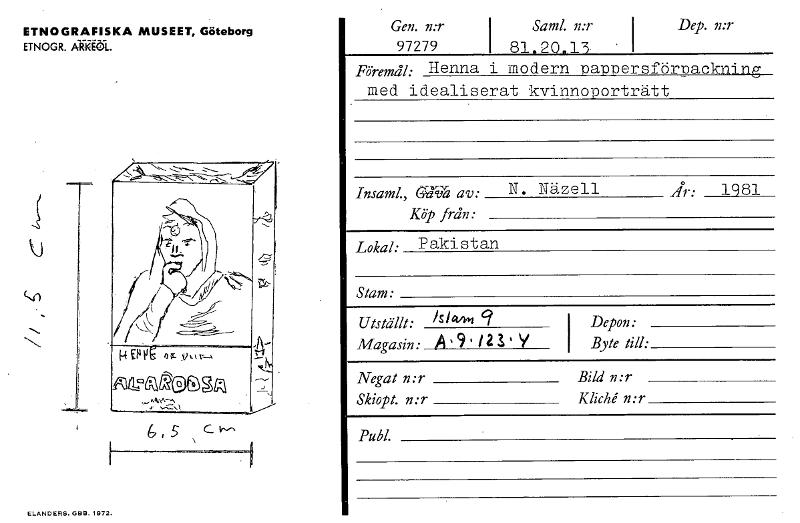 ETNOGRAFISKA MUSEET, Göteborg
ETNOGR. ARKEOL.
11,5 cm
HENNE OR
AL-AROOSA
6,5 cm
ELANDERS, GBG. 1972.
Gen. n:r Saml. n:r Dep. n:r
97279 81.20.13
Föremål: Henna i modern pappersförpackning
med idealiserat kvinnoporträtt
Insaml., Gåva av: N. Näzell År: 1981
Köp från:
Lokal: Pakistan
Stam:
Utställt: Islam 9 Depon:
Magasin: A.9.123.Y Byte till:
Negat n:r Bild n:r
Skiopt. n:r Kliché n:r
Publ.